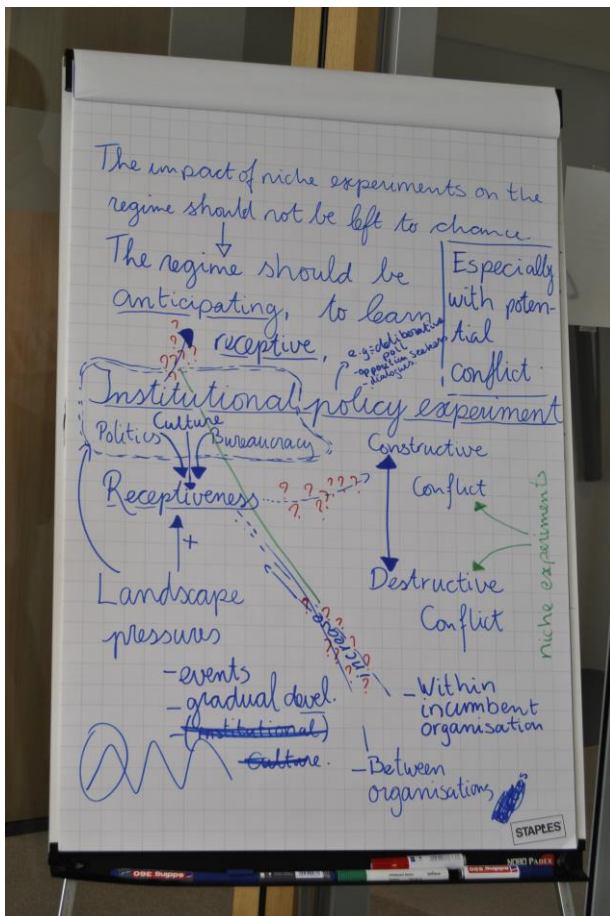 The impact of niche experiments on the
regime should not be left to chance.
The regime should be
anticipating, to learn
receptive,
Especially
with poten-
tial
conflict.
e.g. deliberative
poll
- opposition seekers
- dialogues
Institutional policy experiment
Culture
Politics
Bureaucracy
Receptiveness
? ? ? ? ? ? ?
+
Constructive
Conflict
Destructive
Conflict
niche experiments
Landscape
pressures
- events
- gradual devel.
- (institutional)
Culture.
increase
- Within
incumbent
organisation
- Between
organisations
STAPLES
NOBO
edding 360
edding 360